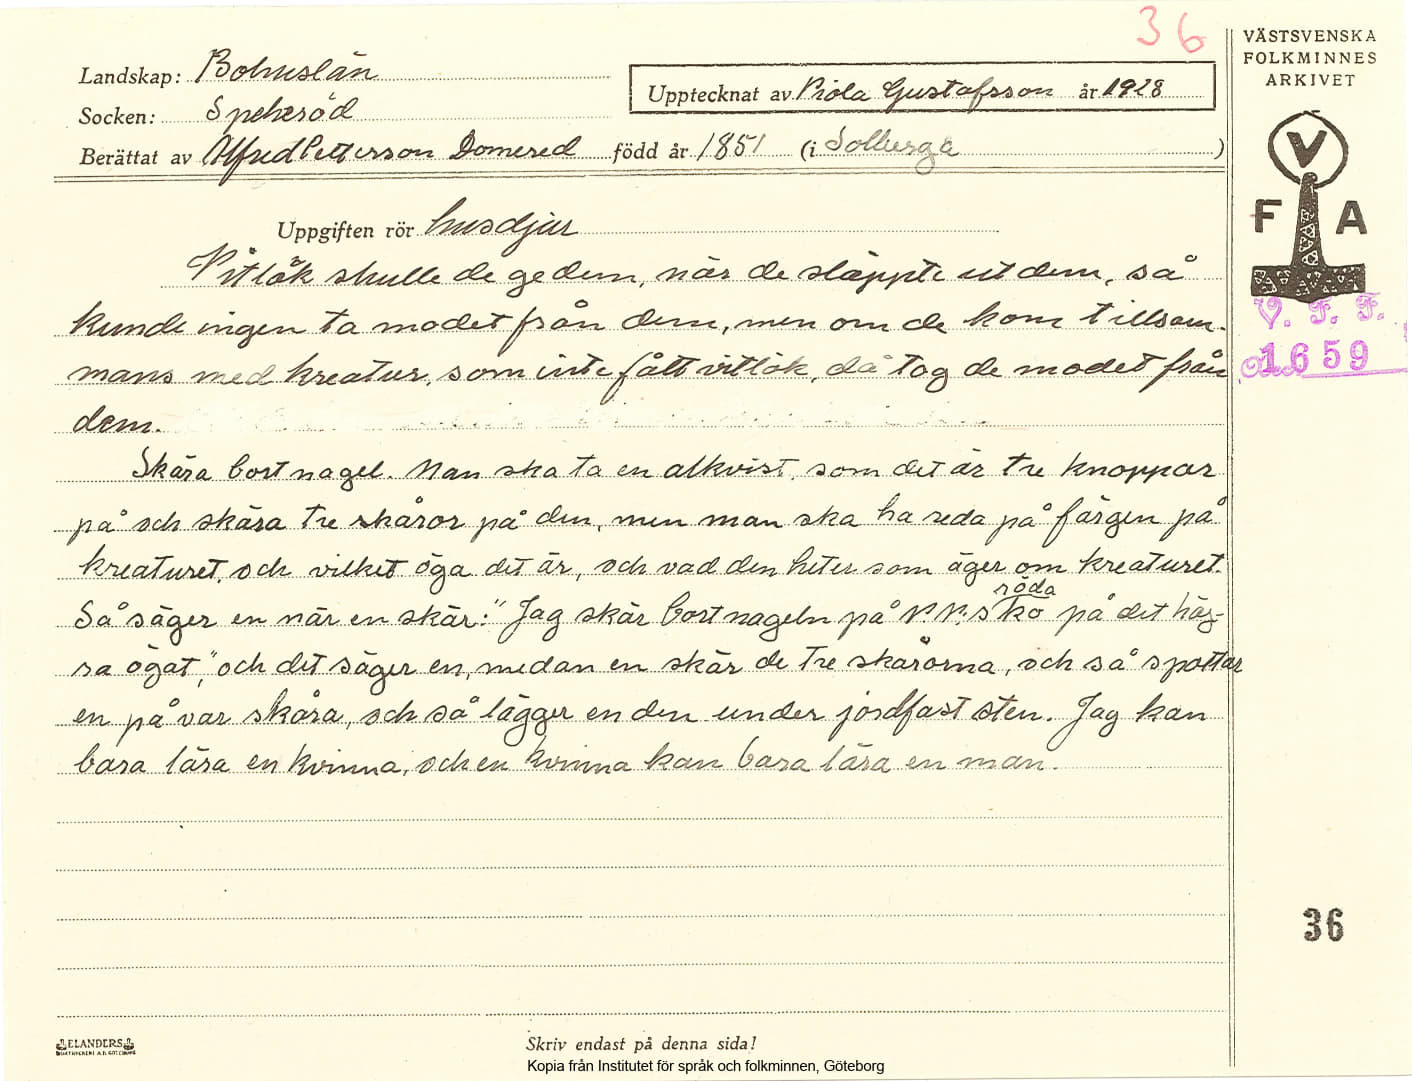 36
VÄSTSVENSKA
FOLKMINNES
ARKIVET
Landskap: Bohuslän
Upptecknat av Viola Gustafsson år 1928
Socken: Spekeröd
Berättat av Alfred Pettersson Domered född år 1851 (i Solberga)
V
F A
Uppgiften rör husdjur
Vitlök skulle de ge dem, när de släppte ut dem, så
kunde ingen ta modet från dem, men om de kom tillsam-
mans med kreatur, som inte fått vitlök, då tog de modet från
dem.
V. F. F.
1659
Skära bort nagel. Man ska ta en alkvist, som det är tre knoppar
på och skära tre skåror på den, men man ska ha reda på färgen på
kreaturet, och vilket öga det är, och vad den heter som äger om kreaturet.
röda
Så säger en när en skär: "Jag skär bort nageln på N.N:s ko på det hög-
ra ögat," och det säger en, medan en skär de tre skårorna, och så spottar
en på var skåra, och så lägger en den under jordfast sten. Jag kan
bara lära en kvinna, och en kvinna kan bara lära en man.
36
ELANDERS
Skriv endast på denna sida!
Kopia från Institutet för språk och folkminnen, Göteborg